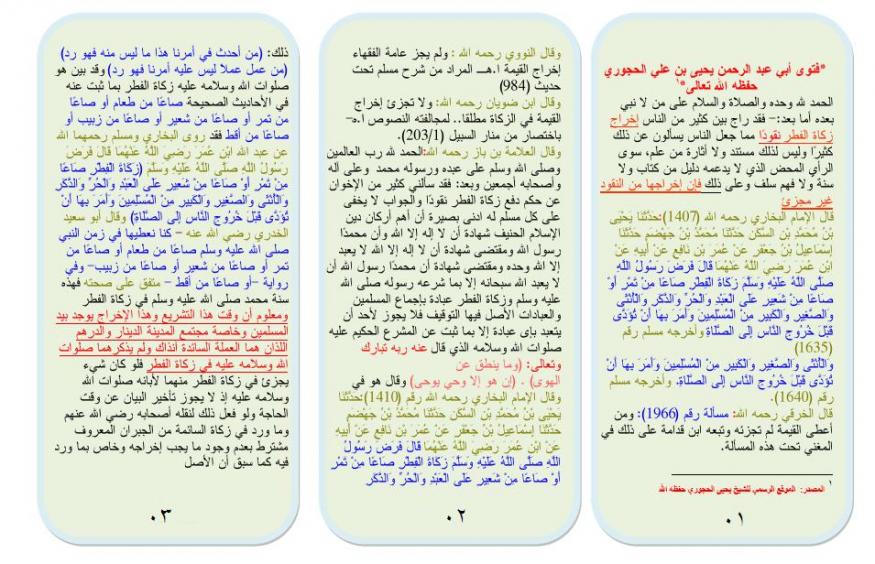 *فتوى أبي عبد الرحمن يحيى بن علي الحجوري
حفظه الله تعالى*١
الحمد لله وحده والصلاة والسلام على من لا نبي
بعده أما بعد:– فقد راج بين كثير من الناس إخراج
زكاة الفطر نقودًا مما جعل الناس يسألون عن ذلك
كثيرًا وليس لذلك مستند ولا أثارة من علم، سوى
الرأي المحض الذي لا يدعمه دليل من كتاب ولا
سنة ولا فهم سلف وعلى ذلك فإن إخراجها من النقود
غير مجزئ
قال الإمام البخاري رحمه الله (1407):حَدَّثَنَا يَحْيَى
بْنُ مُحَمَّدِ بْنِ السَّكَنِ حَدَّثَنَا مُحَمَّدُ بْنُ جَهْضَمٍ حَدَّثَنَا
إِسْمَاعِيلُ بْنُ جَعْفَرٍ عَنْ عُمَرَ بْنِ نَافِعٍ عَنْ أَبِيهِ عَنْ
ابْنِ عُمَرَ رَضِيَ اللَّهُ عَنْهُمَا قَالَ فَرَضَ رَسُولُ اللَّهِ
صَلَّى اللَّهُ عَلَيْهِ وَسَلَّمَ زَكَاةَ الْفِطْرِ صَاعًا مِنْ تَمْرٍ أَوْ
صَاعًا مِنْ شَعِيرٍ عَلَى الْعَبْدِ وَالْحُرِّ وَالذَّكَرِ وَالْأُنْثَى
وَالصَّغِيرِ وَالْكَبِيرِ مِنْ الْمُسْلِمِينَ وَأَمَرَ بِهَا أَنْ تُؤَدَّى
قَبْلَ خُرُوجِ النَّاسِ إِلَى الصَّلَاةِ) وأخرجه مسلم رقم
(1635)
وَالْأُنْثَى وَالصَّغِيرِ وَالْكَبِيرِ مِنْ الْمُسْلِمِينَ وَأَمَرَ بِهَا أَنْ
تُؤَدَّى قَبْلَ خُرُوجِ النَّاسِ إِلَى الصَّلَاةِ. وأخرجه مسلم
رقم (1640).
قال الخرقي رحمه الله: مسألة رقم (1966): ومن
أعطى القيمة لم تجزئه وتبعه ابن قدامة على ذلك في
المغني تحت هذه المسألة.
١ المصدر: الموقع الرسمي للشيخ يحيى الحجوري حفظه الله
٠١
وقال النووي رحمه الله : ولم يجز عامة الفقهاء
إخراج القيمة ا.هـ المراد من شرح مسلم تحت
حديث (984)
وقال ابن ضويان رحمه الله: ولا تجزئ إخراج
القيمة في الزكاة مطلقًا.. لمخالفته النصوص ا.ه–
باختصار من منار السبيل (203/1).
وقال العلامة بن باز رحمه الله:الحمد لله رب العالمين
وصلى الله وسلم على عبده ورسوله محمد وعلى آله
وأصحابه أجمعين وبعد: فقد سألني كثير من الإخوان
عن حكم دفع زكاة الفطر نقودًا والجواب لا يخفى
على كل مسلم له ادنى بصيرة أن أهم أركان دين
الإسلام الحنيف شهادة أن لا إله إلا الله وأن محمدًا
رسول الله ومقتضى شهادة أن لا إله إلا الله لا يعبد
إلا الله وحده ومقتضى شهادة أن محمدًا رسول الله أن
لا يعبد الله سبحانه إلا بما شرعه رسوله صلى الله
عليه وسلم وزكاة الفطر عبادة بإجماع المسلمين
والعبادات الأصل فيها التوقيف فلا يجوز لأحد أن
يتعبد بأي عبادة إلا بما ثبت عن المشرع الحكيم عليه
صلوات الله وسلامه الذي قال عنه ربه تبارك
وتعالى: (وما ينطق عن
الهوى) . (إن هو إلا وحي يوحى) وقال هو في
وقال الإمام البخاري رحمه الله رقم (1410):حَدَّثَنَا
يَحْيَى بْنُ مُحَمَّدِ بْنِ السَّكَنِ حَدَّثَنَا مُحَمَّدُ بْنُ جَهْضَمٍ
حَدَّثَنَا إِسْمَاعِيلُ بْنُ جَعْفَرٍ عَنْ عُمَرَ بْنِ نَافِعٍ عَنْ أَبِيهِ
عَنْ ابْنِ عُمَرَ رَضِيَ اللَّهُ عَنْهُمَا قَالَ فَرَضَ رَسُولُ
اللَّهِ صَلَّى اللَّهُ عَلَيْهِ وَسَلَّمَ زَكَاةَ الْفِطْرِ صَاعًا مِنْ تَمْرٍ
أَوْ صَاعًا مِنْ شَعِيرٍ عَلَى الْعَبْدِ وَالْحُرِّ وَالذَّكَرِ
٠٢
ذلك: (من أحدث في أمرنا هذا ما ليس منه فهو رد)
(من عمل عملا ليس عليه أمرنا فهو رد) وقد بين هو
صلوات الله وسلامه عليه زكاة الفطر بما ثبت عنه
في الأحاديث الصحيحة صاعًا من طعام أو صاعًا
من تمر أو صاعًا من شعير أو صاعًا من زبيب أو
صاعًا من أقط فقد روى البخاري ومسلم رحمهما الله
عن عبد الله ابْنِ عُمَرَ رَضِيَ اللَّهُ عَنْهُمَا قَالَ فَرَضَ
رَسُولُ اللَّهِ صَلَّى اللَّهُ عَلَيْهِ وَسَلَّمَ (زَكَاةَ الْفِطْرِ صَاعًا
مِنْ تَمْرٍ أَوْ صَاعًا مِنْ شَعِيرٍ عَلَى الْعَبْدِ وَالْحُرِّ وَالذَّكَرِ
وَالْأُنْثَى وَالصَّغِيرِ وَالْكَبِيرِ مِنْ الْمُسْلِمِينَ وَأَمَرَ بِهَا أَنْ
تُؤَدَّى قَبْلَ خُرُوجِ النَّاسِ إِلَى الصَّلَاةِ) وقال أبو سعيد
الخدري رضي الله عنه – كنا نعطيها في زمن النبي
صلى الله عليه وسلم صاعًا من طعام أو صاعًا من
تمر أو صاعًا من شعير أو صاعًا من زبيب– وفي
رواية –أو صاعًا من أقط – متفق على صحته فهذه
سنة محمد صلى الله عليه وسلم في زكاة الفطر
ومعلوم أن وقت هذا التشريع وهذا الإخراج يوجد بيد
المسلمين وخاصة مجتمع المدينة الدينار والدرهم
اللذان هما العملة السائدة آنذاك ولم يذكرهما صلوات
الله وسلامه عليه في زكاة الفطر فلو كان شيء
يجزئ في زكاة الفطر منهما لأبانه صلوات الله
وسلامه عليه إذ لا يجوز تأخير البيان عن وقت
الحاجة ولو فعل ذلك لنقله أصحابه رضي الله عنهم
وما ورد في زكاة السائمة من الجبران المعروف
مشترط بعدم وجود ما يجب إخراجه وخاص بما ورد
فيه كما سبق أن الأصل
٠٣